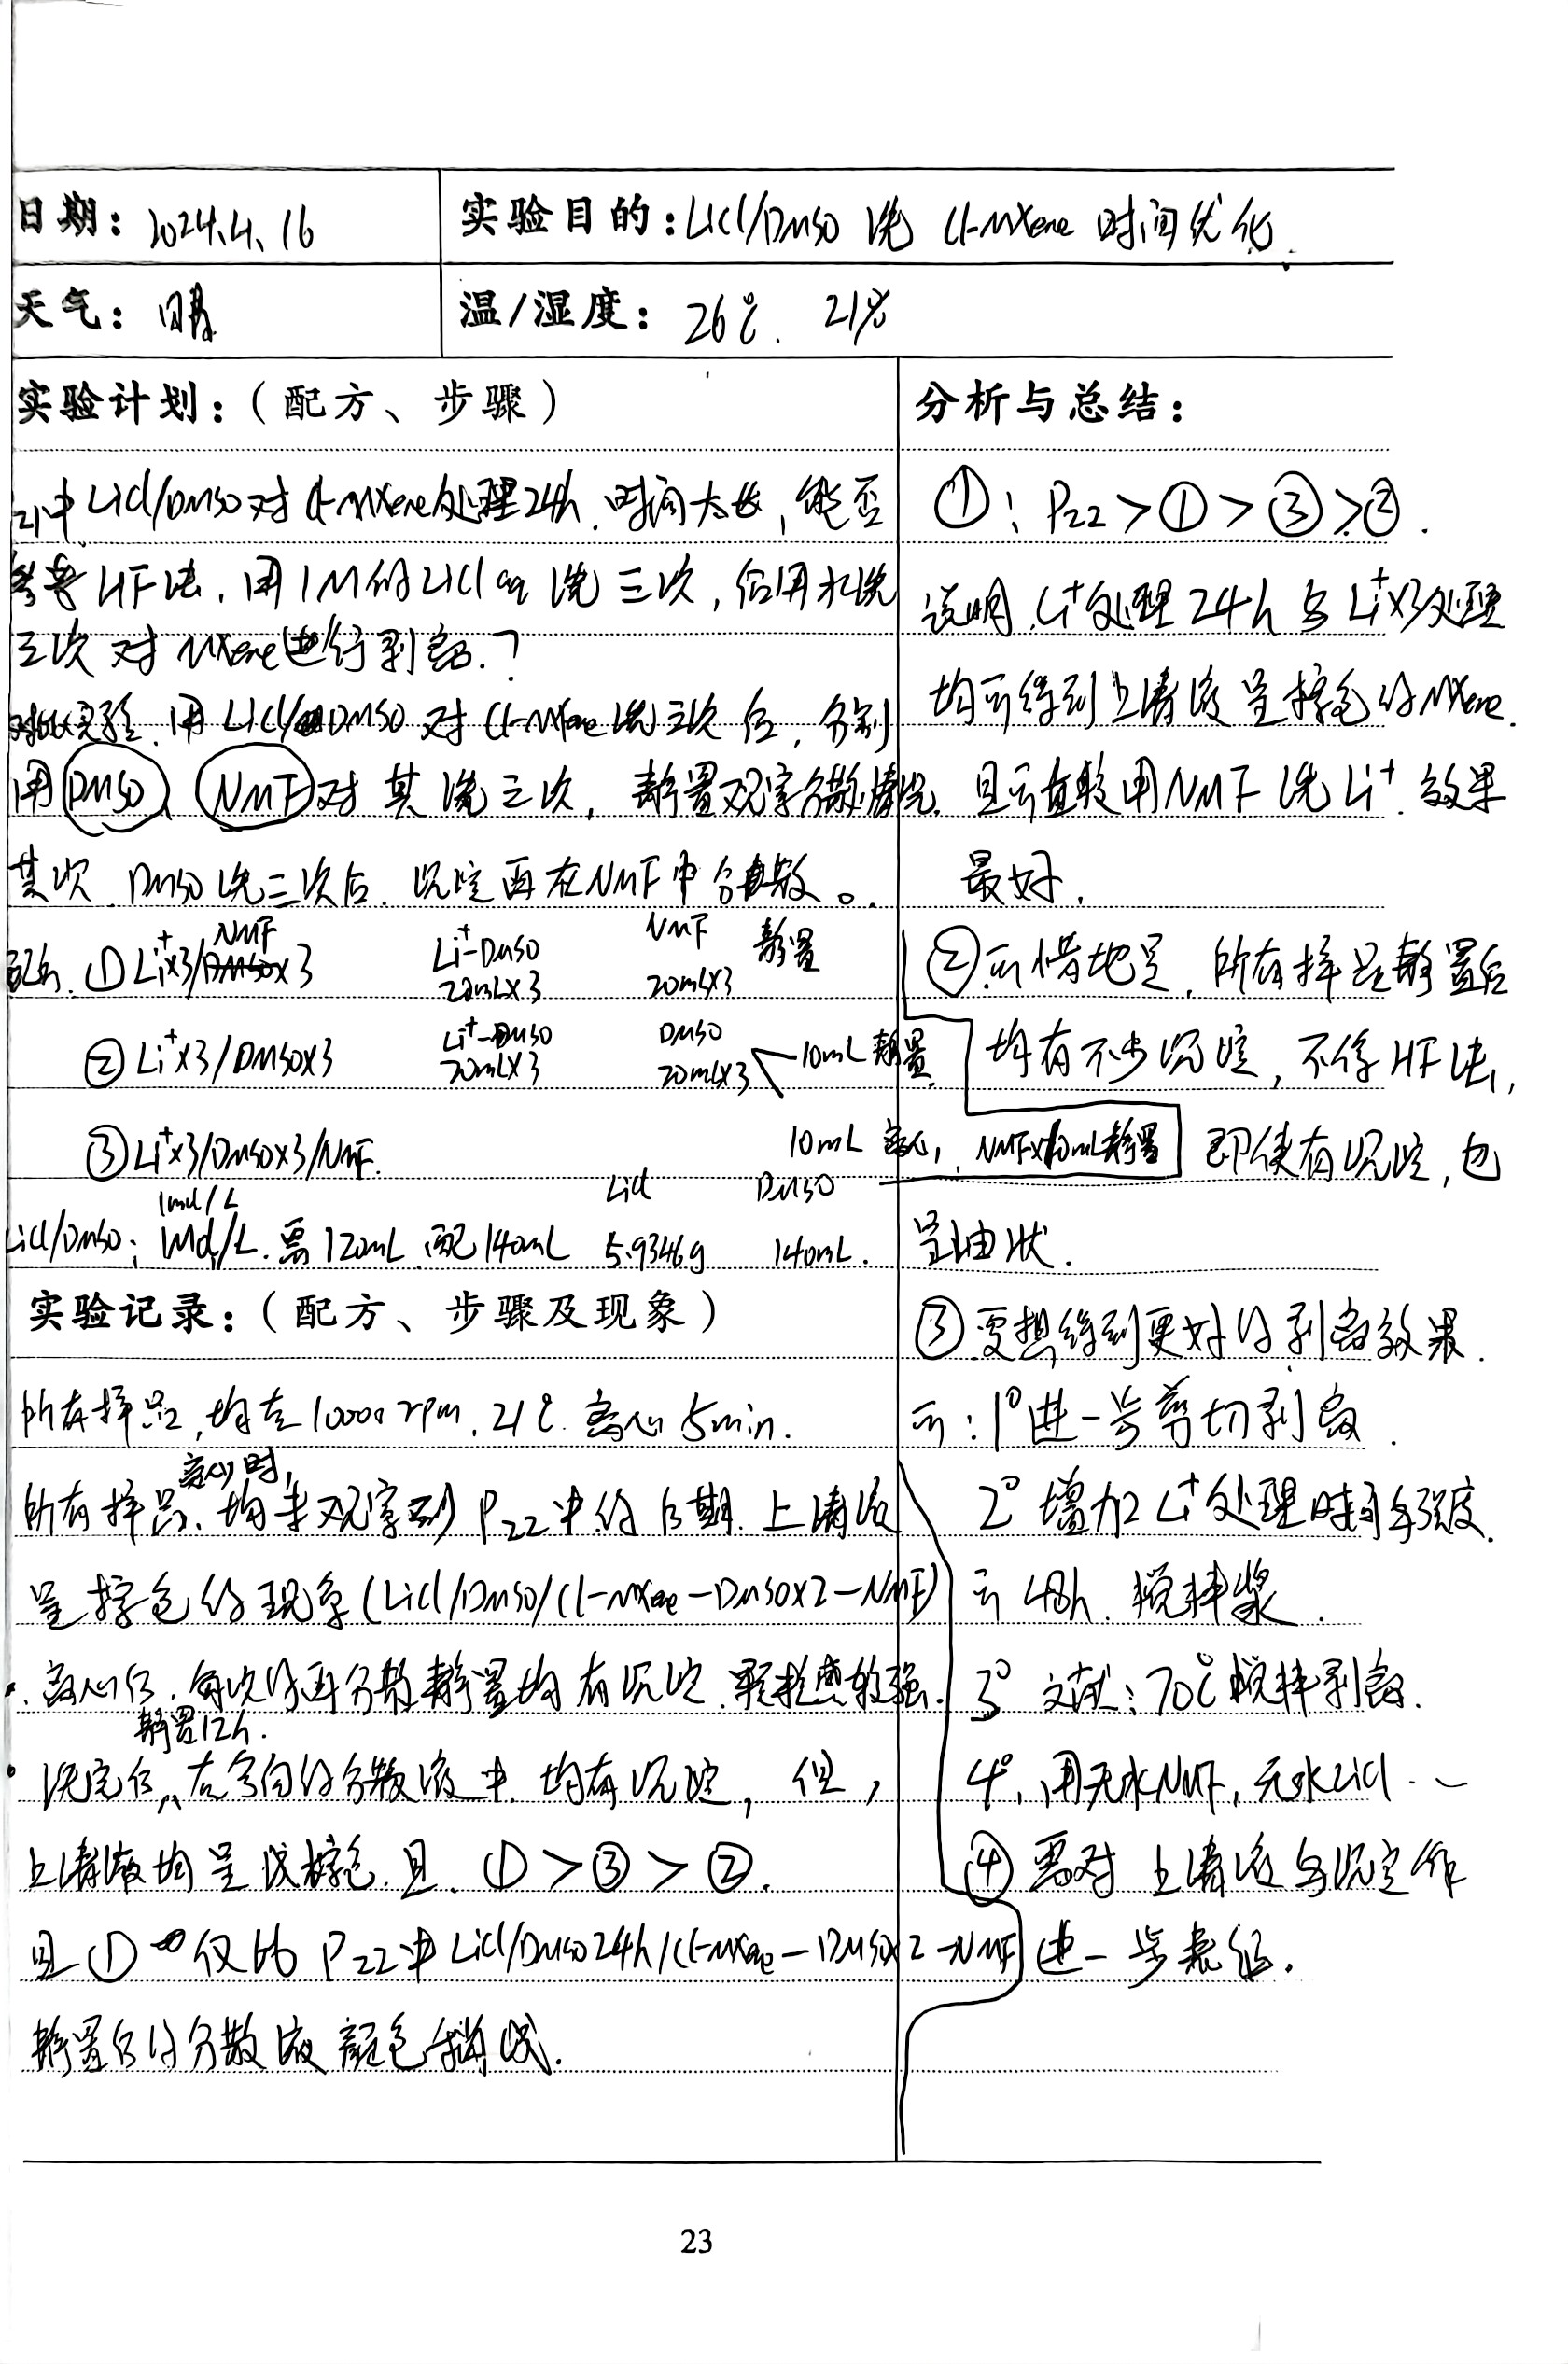 日期：2024.4.16
实验目的：LiCl/DMSO 洗 Cl-MXene 时间优化.
天气：晴
温/湿度：26℃. 21%
实验计划：（配方、步骤）
21中 LiCl/DMSO 对 Cl-MXene 处理 24h. 时间太长, 能否
参考 HF法. 用 1M的LiCl aq 洗 三次, 后用水洗
三次 对 MXene 进行剥离.?
对比实验. 用 LiCl/DMSO 对 Cl-MXene 洗三次后, 分别
用 DMSO、NMF 对 其 洗 三次, 静置观察分散情况.
其次. DMSO 洗三次后. 沉淀再在NMF中分散。
配方. ① Li⁺x3/NMFx3 Li⁺-DMSO 20mLx3 NMF 20mLx3 静置
② Li⁺x3/DMSOx3 Li⁺-DMSO 20mLx3 DMSO 20mLx3 10mL 静置.
③ Li⁺x3/DMSOx3/NMF. 10mL 离心, NMFx10mL静置
1mol/L LiCl DMSO
LiCl/DMSO: 1mol/L. 需120mL. 配140mL 5.9346g 140mL.
实验记录：（配方、步骤及现象）
所有样品, 均在 10000 rpm. 21℃. 离心 5min.
所有样品. 离心时, 均未观察到 P22中的后期. 上清液
呈棕色的现象 (LiCl/DMSO/Cl-MXene-DMSOx2-NMF)
. 离心后. 每次的再分散静置均有沉淀. 颗粒感较强.
静置12h.
. 洗完后, 在各自的分散液中. 均有沉淀, 但,
上清液均呈浅棕色. 且. ①>③>②.
且① 仅比 P22中 LiCl/DMSO 24h/Cl-MXene-DMSOx2-NMF
静置后的分散液颜色稍浅.
分析与总结：
①: P22>①>③>②.
说明. Li⁺处理 24h 与 Li⁺x3处理
均可得到上清液呈棕色的MXene.
且可直接用NMF 洗Li⁺. 效果
最好.
②.可惜地是, 所有样品静置后
均有不少沉淀, 不像HF法,
即使有沉淀, 也
呈油状.
③.要想得到更好的剥离效果.
可: 1° 进一步剪切剥离.
2° 增加Li⁺处理时间与强度.
可 48h. 搅拌桨.
3° 文献: 70℃搅拌剥离.
4°. 用无水NMF, 无水LiCl..
④ 需对上清液与沉淀作
进一步表征.
23